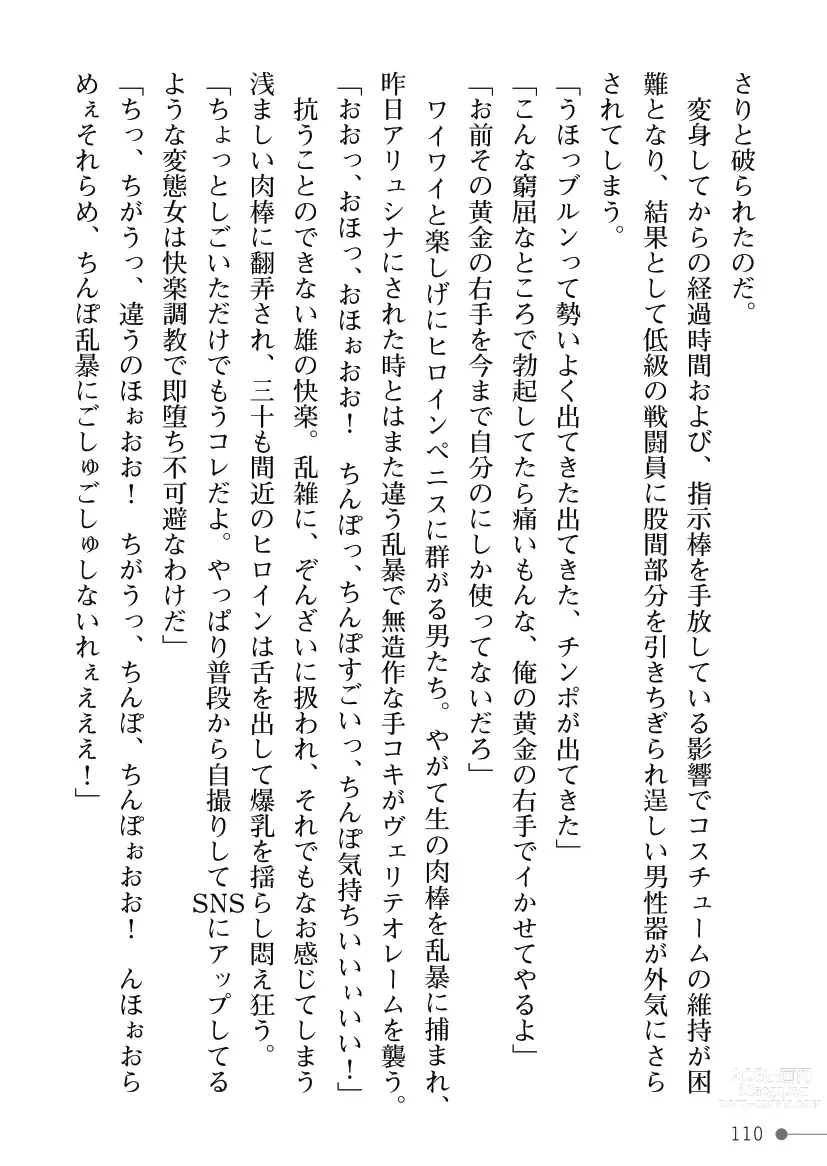 さりと破られたのだ。
　変身してからの経過時間および、指示棒を手放している影響でコスチュームの維持が困
難となり、結果として低級の戦闘員に股間部分を引きちぎられ逞しい男性器が外気にさら
されてしまう。
「うほっブルンって勢いよく出てきた出てきた、チンポが出てきた」
「こんな窮屈なところで勃起してたら痛いもんな、俺の黄金の右手でイかせてやるよ」
「お前その黄金の右手を今まで自分のにしか使ってないだろ」
　ワイワイと楽しげにヒロインペニスに群がる男たち。やがて生の肉棒を乱暴に捕まれ、
昨日アリュシナにされた時とはまた違う乱暴で無造作な手コキがヴェリテオレームを襲う。
「おおっ、おほっ、おほぉおお！　ちんぽっ、ちんぽすごいっ、ちんぽ気持ちいいぃいい！」
　抗うことのできない雄の快楽。乱雑に、ぞんざいに扱われ、それでもなお感じてしまう
浅ましい肉棒に翻弄され、三十も間近のヒロインは舌を出して爆乳を揺らし悶え狂う。
「ちょっとしごいただけでもうコレだよ。やっぱり普段から自撮りしてSNSにアップしてる
ような変態女は快楽調教で即堕ち不可避なわけだ」
「ちっ、ちがうっ、違うのほぉおお！　ちがうっ、ちんぽ、ちんぽぉおお！　んほぉおら
めぇそれらめ、ちんぽ乱暴にごしゅごしゅしないれぇえええ！」
110